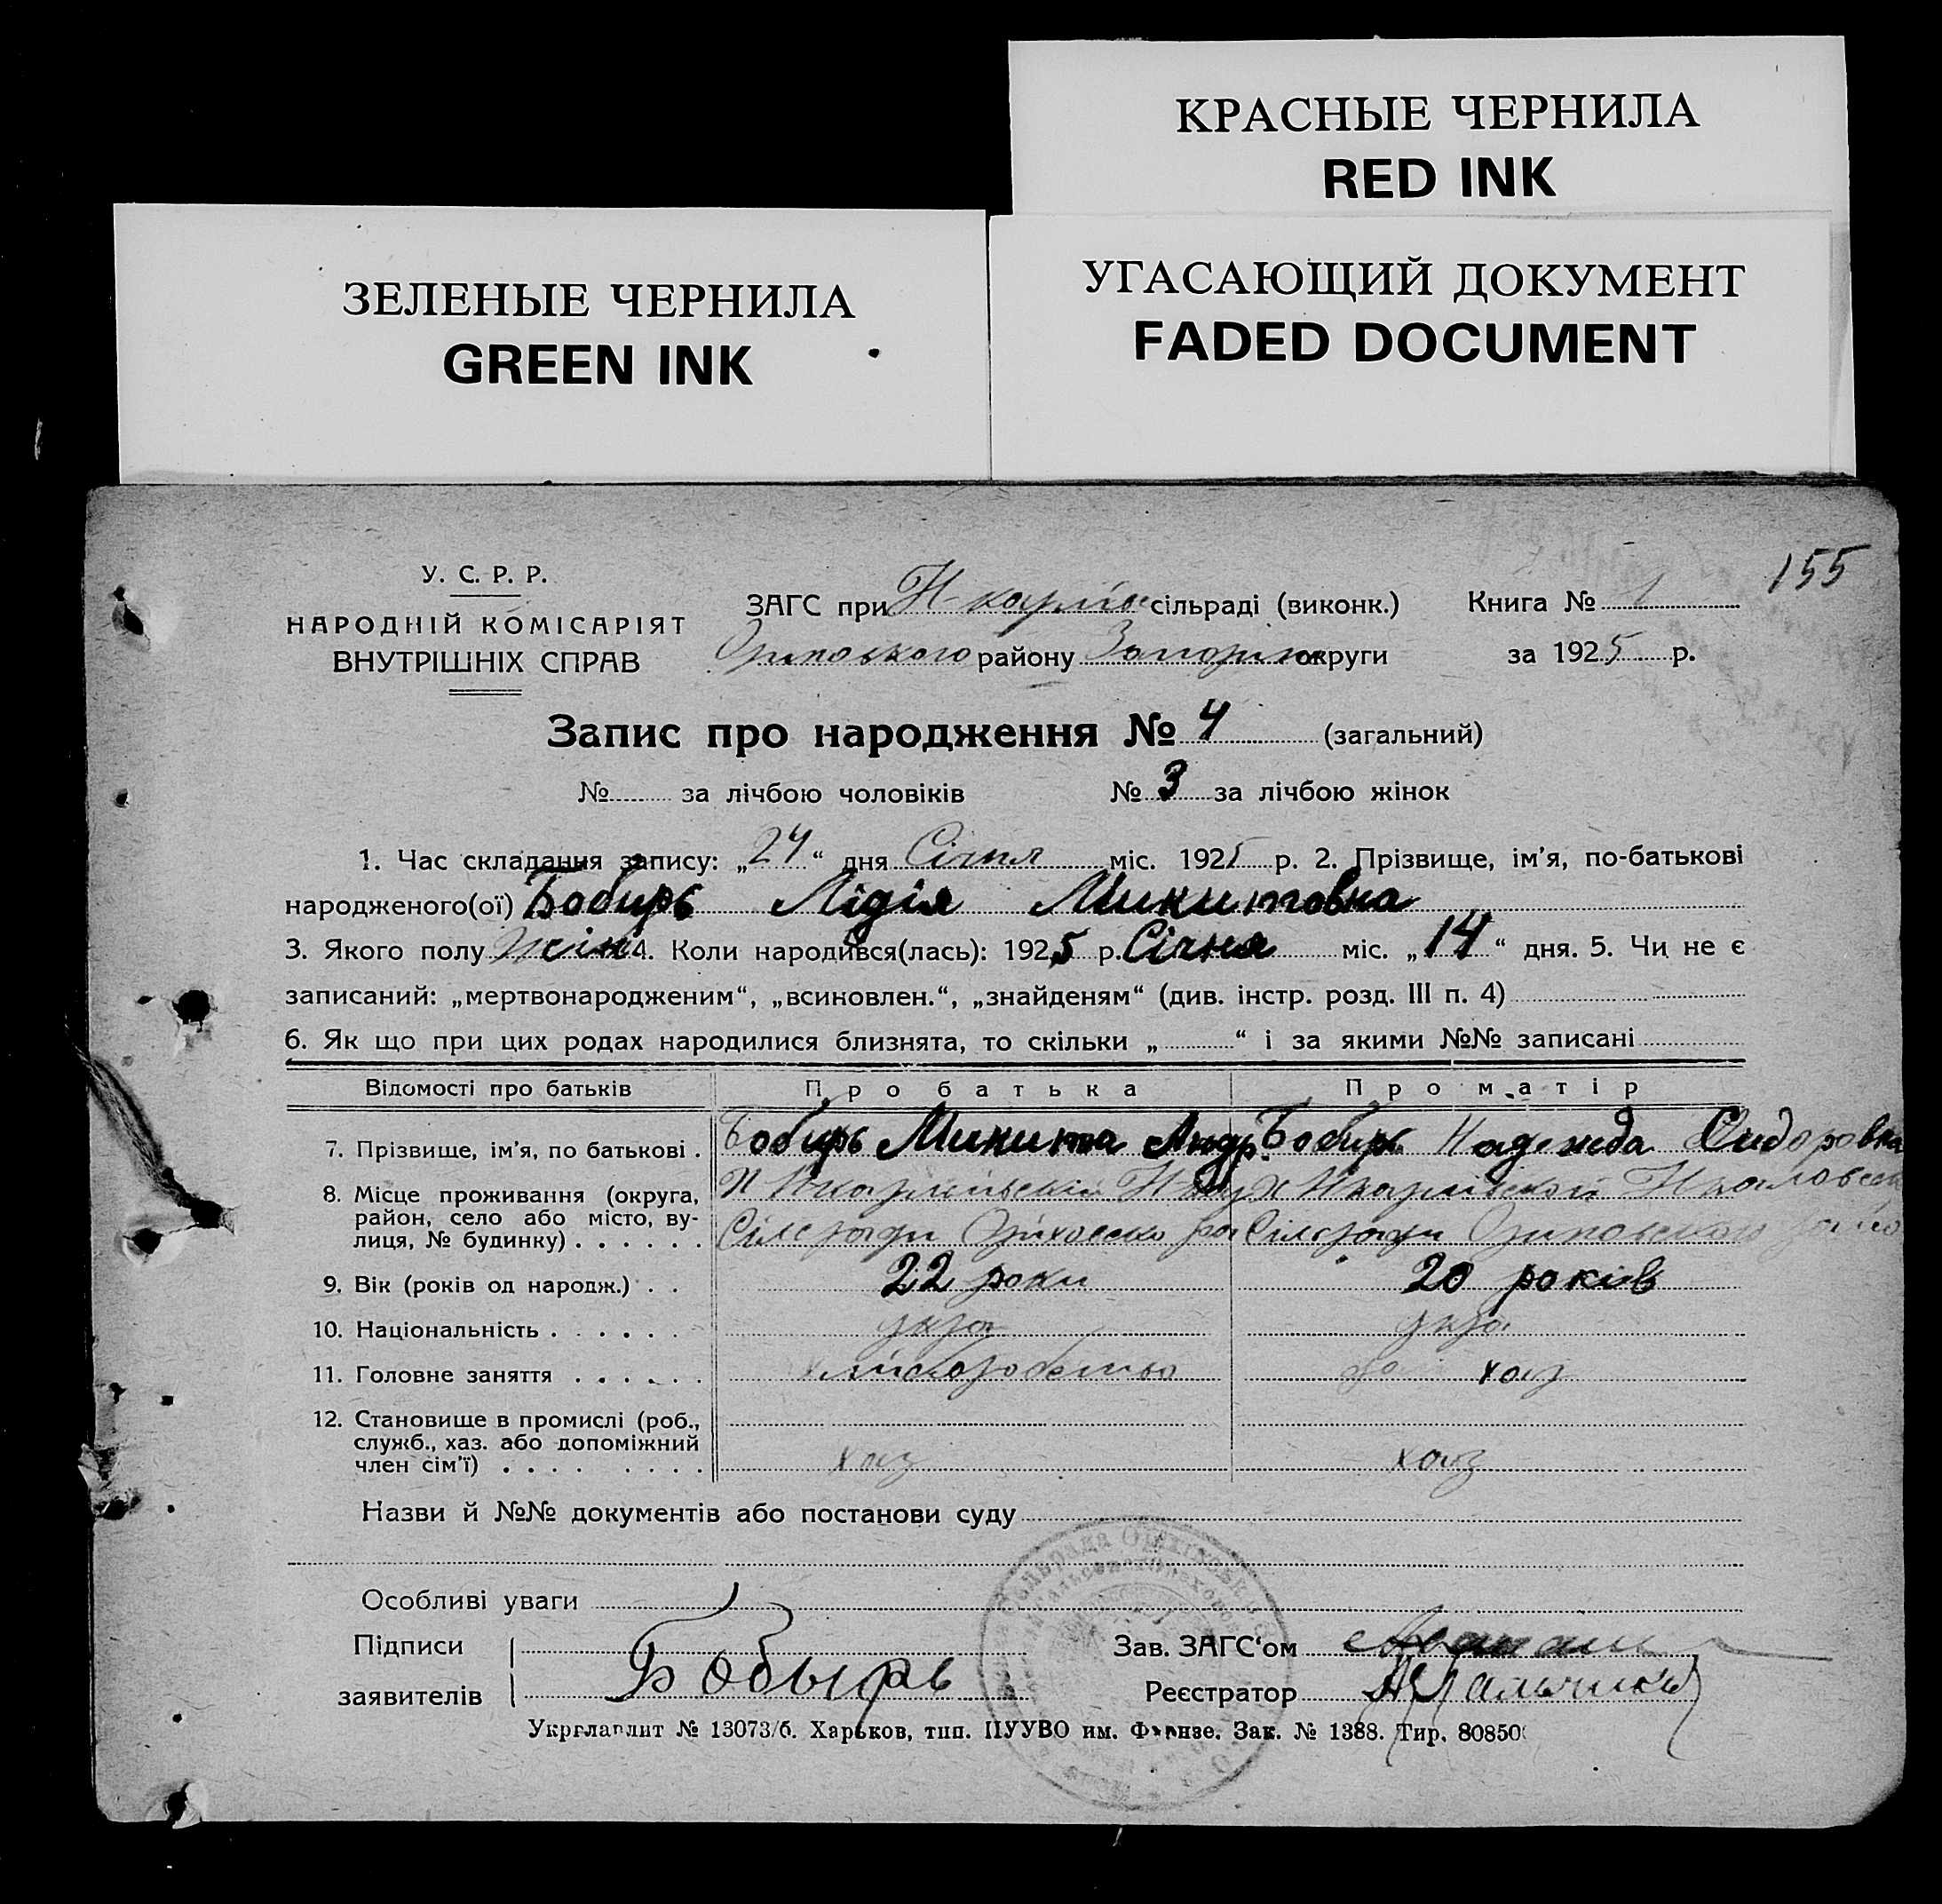 КРАСНЫЕ ЧЕРНИЛА
RED INK
ЗЕЛЕНЫЕ ЧЕРНИЛА
GREEN INK
УГАСАЮЩИЙ ДОКУМЕНТ
FADED DOCUMENT
155
У. С. Р. Р.
НАРОДНІЙ КОМІСАРІЯТ
ВНУТРІШНІХ СПРАВ
ЗАГС при сільраді (виконк.) Книга № 1
району округи за 1925 р.
Запис про народження № 4 (загальний)
№ за лічбою чоловіків № 3 за лічбою жінок
1. Час складання запису: „24“ дня Січня міс. 1925 р. 2. Прізвище, ім'я, по-батькові
народженого(ої) Бобирь Лідія Микитовна
3. Якого полу жін 4. Коли народився(лась): 1925 р. Січня міс. „14“ дня. 5. Чи не є
записаний: „мертвонародженим“, „всиновлен.“, „знайденям“ (див. інстр. розд. III п. 4)
6. Як що при цих родах народилися близнята, то скільки „ “ і за якими №№ записані
Відомості про батьків Про батька Про матір
7. Прізвище, ім'я, по батькові . Бобирь Микита Андр. Бобирь Надежда Сидоровна
8. Місце проживання (округа,
район, село або місто, ву-
лиця, № будинку) . . . . . .
9. Вік (років од народж.) . . 22 роки 20 років
10. Національність . . . . . . укра укра
11. Головне заняття . . . . . . хліборобство хаз
12. Становище в промислі (роб.,
служб., хаз. або допоміжний
член сім'ї) . . . . . . . . хаз хаз
Назви й №№ документів або постанови суду
Особливі уваги
Підписи Зав. ЗАГС'ом
заявителів Бобырь Реєстратор
Укрглавліт № 13073/б. Харьков, тип. ПУУВО им. Фрунзе. Зак. № 1388. Тир. 80850